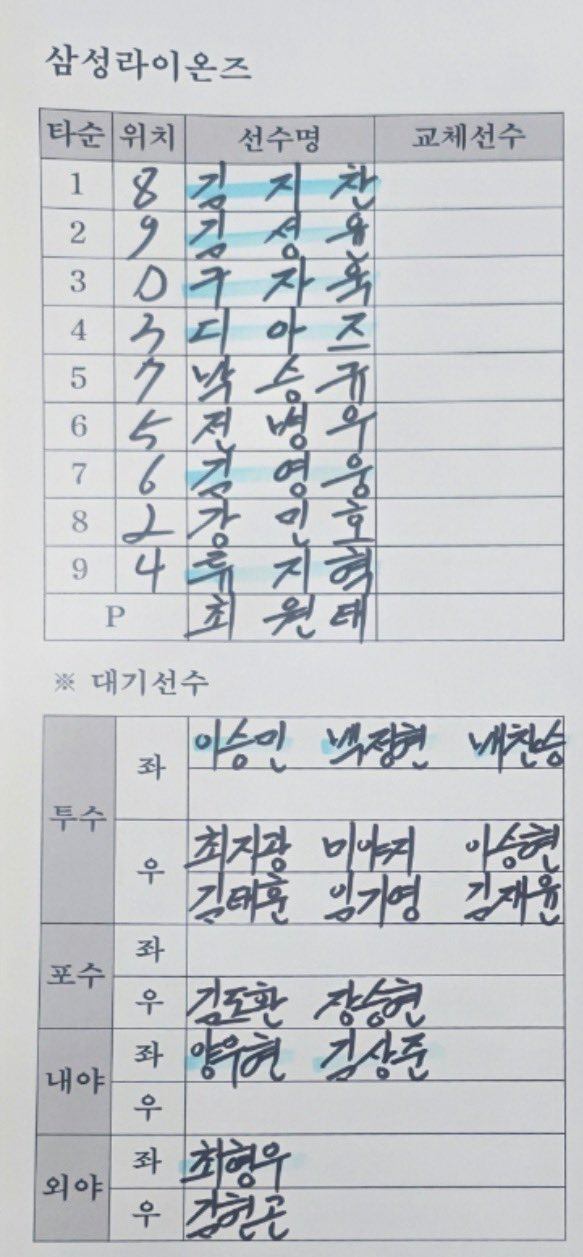 삼성라이온즈
타순 위치 선수명 교체선수
1 8 김지찬
2 9 김성윤
3 D 구자욱
4 3 디아즈
5 7 박승규
6 5 전병우
7 6 김영웅
8 2 강민호
9 4 류지혁
P 최원태
※ 대기선수
투수 좌 이승민 백정현 배찬승
우 최지광 미야지 이승현
김태훈 임기영 김재윤
포수 좌
우 김도환 장승현
내야 좌 양우현 김상준
우
외야 좌 최형우
우 김헌곤